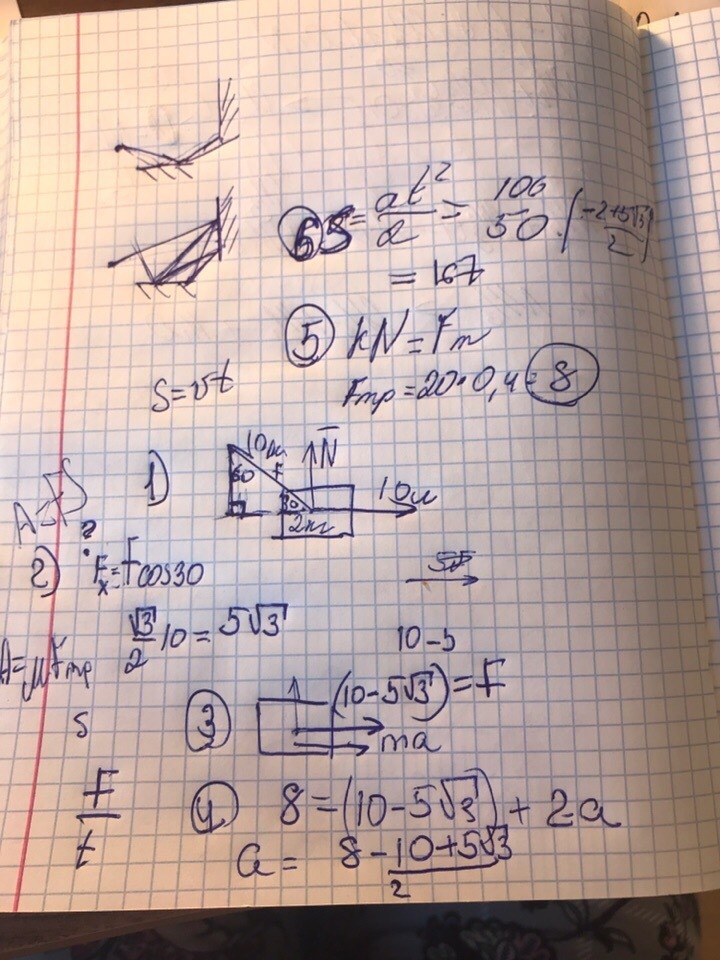 6 S = at²/2 = 100/50 · (-2+5√3/2)
= 167
5 kN = Fm
S = vt
Fmp = 20 · 0,4 = 8
1) 10 N̄
60 F 10н
30
2кг
?
2) Fx = Fcos30
√3/2 10 = 5√3
10 - 5
A = μFmp
S
3 (10 - 5√3) = F
ma
F/t
4 8 = (10 - 5√3) + 2a
a = 8 - 10 + 5√3/2